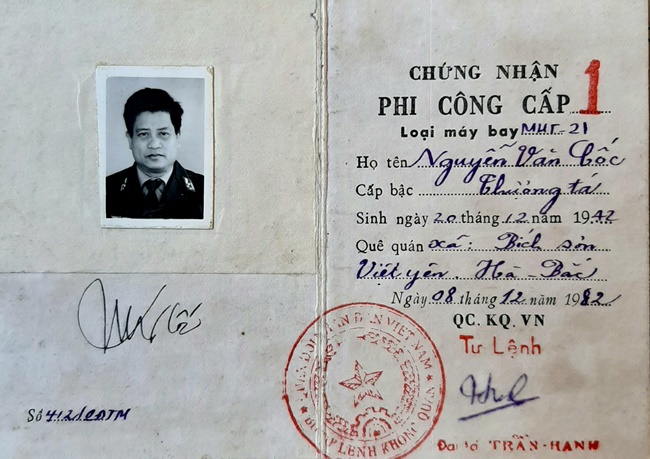 Số 412/CĐTM
CHỨNG NHẬN
PHI CÔNG CẤP 1
Loại máy bay МИГ-21
Họ tên Nguyễn Văn Cốc
Cấp bậc Thượng tá
Sinh ngày 20 tháng 12 năm 1942
Quê quán xã: Bích Sơn
Việt yên. Hà-Bắc
Ngày 08 tháng 12 năm 1982
QC. KQ. VN
Tư Lệnh
QUÂN ĐỘI NHÂN DÂN VIỆT NAM
BỘ TƯ LỆNH KHÔNG QUÂN
Đại tá TRẦN-HANH